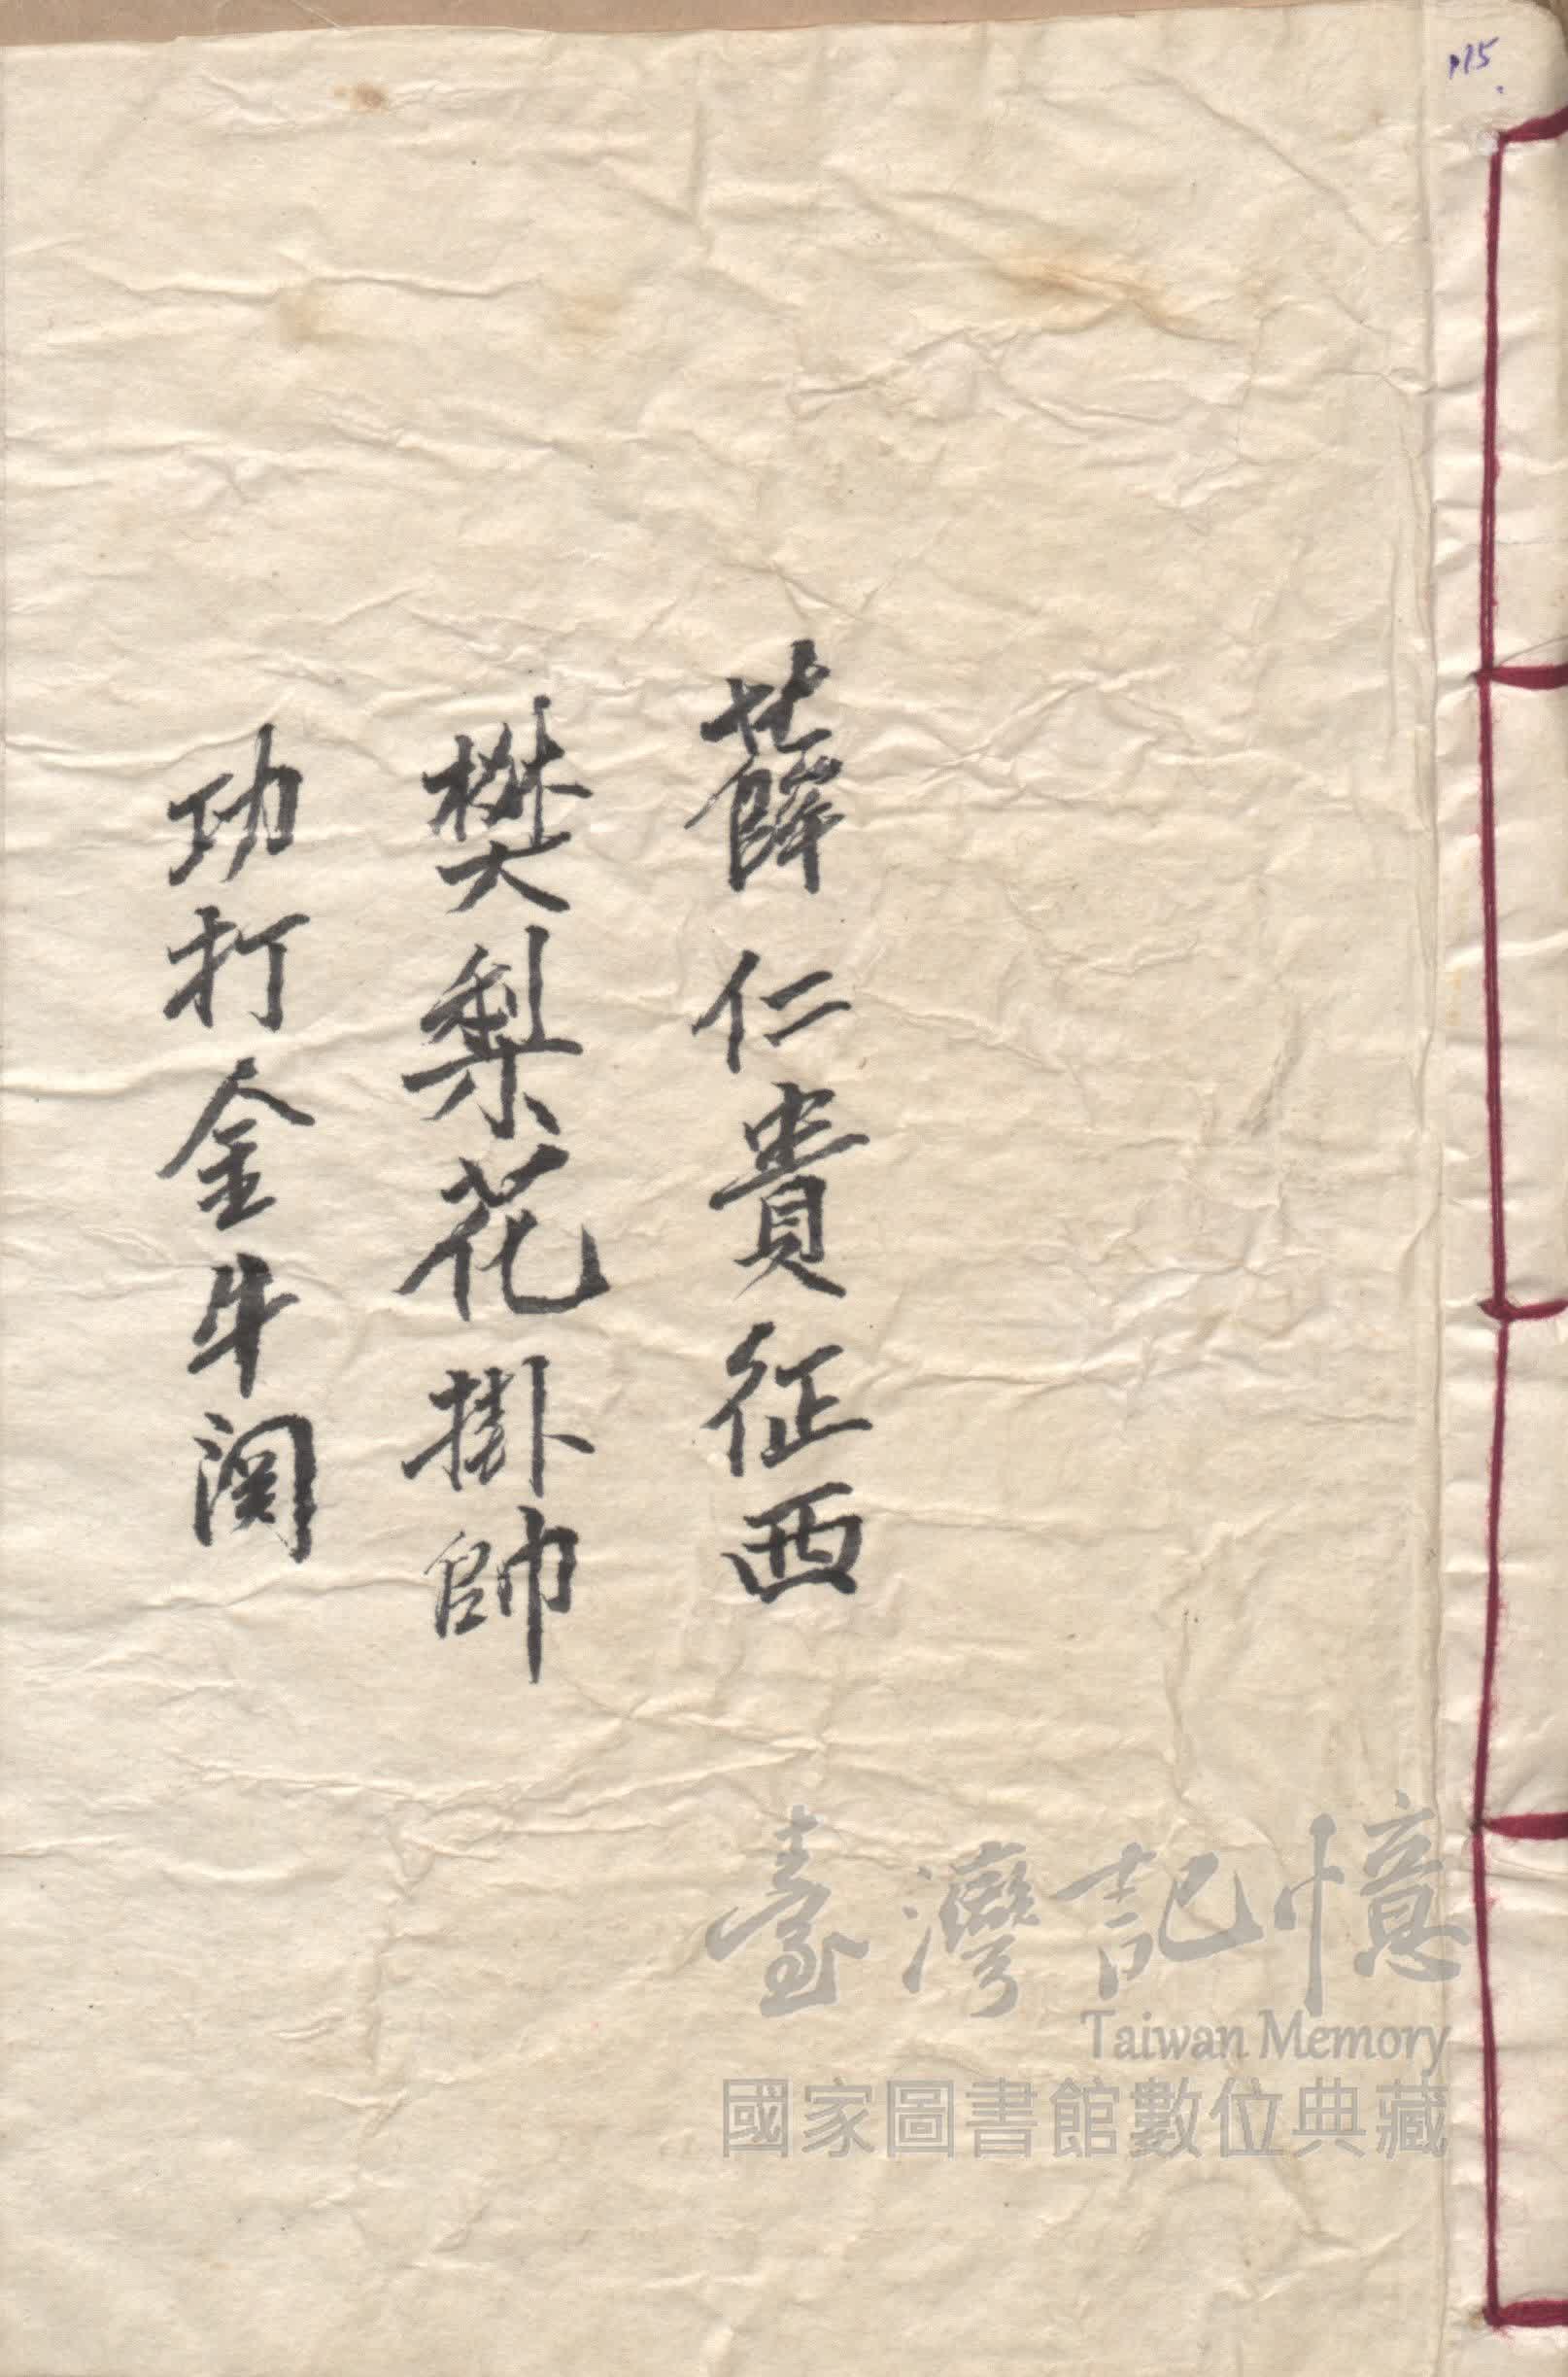 115
薛仁貴征西
樊梨花掛帥
功打金牛関
臺灣記憶
Taiwan Memory
國家圖書館數位典藏